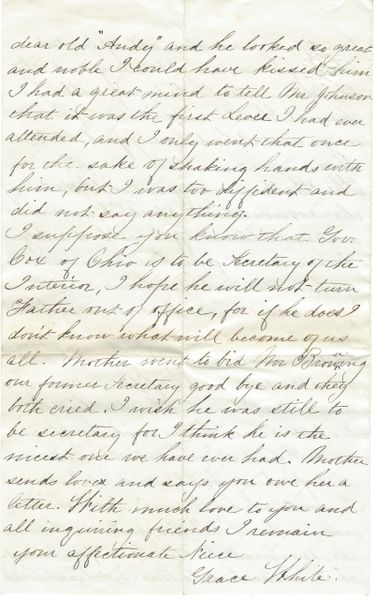 dear old "Andy" and he looked so great
and noble I could have kissed him
I had a great mind to tell Mr Johnson
that it was the first Levee I had ever
attended, and I only went that once
for the sake of shaking hands with
him, but I was too diffident and
did not say anything.
I suppose you know that Gov.
Cox of Ohio is to be Secretary of the
Interior, I hope he will not turn
Father out of office, for if he does I
dont know what will become of us
all. Mother went to bid Mr Browning
our former Secretary good bye and they
both cried. I wish he was still to
be secretary for I think he is the
nicest one we have ever had. Mother
sends love and says you owe her a
letter. With much love to you and
all inquiring friends I remain
your affectionate Niece
Grace White.